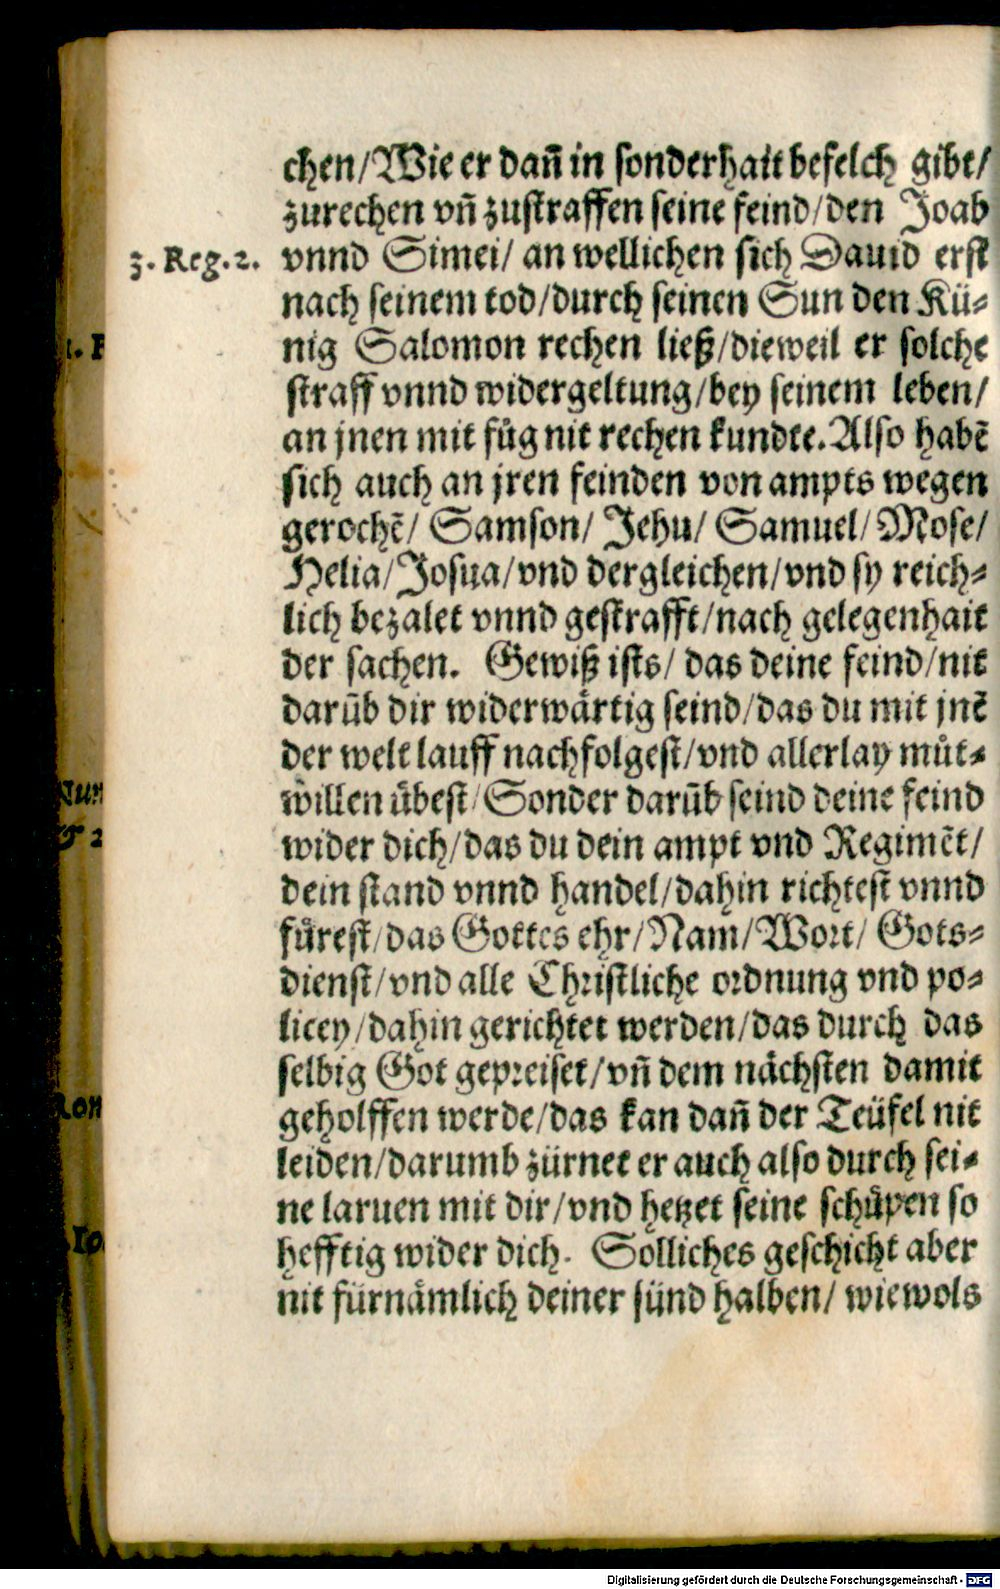 chen/Wie er dañ in sonderhait befelch gibt/
zurechen vñ zustraffen seine feind/den Joab
3. Reg. 2. vnnd Simei/ an wellichen sich Dauid erst
nach seinem tod/durch seinen Sun den Kü-
nig Salomon rechen ließ/dieweil er solche
straff vnnd widergeltung/bey seinem leben/
an jnen mit fůg nit rechen kundte. Also habẽ
sich auch an jren feinden von ampts wegen
gerochẽ/ Samson/ Jehu/ Samuel/ Mose/
Helia/Josua/vnd dergleichen/vnd sy reich-
lich bezalet vnnd gestrafft/nach gelegenhait
der sachen. Gewiß ists/ das deine feind/nit
darũb dir widerwärtig seind/das du mit jnẽ
der welt lauff nachfolgest/vnd allerlay můt-
willen übest/Sonder darũb seind deine feind
wider dich/das du dein ampt vnd Regimẽt/
dein stand vnnd handel/dahin richtest vnnd
fürest/das Gottes ehr/Nam/Wort/ Gots-
dienst/vnd alle Christliche ordnung vnd po-
licey/dahin gerichtet werden/das durch das
selbig Got gepreiset/vñ dem nächsten damit
geholffen werde/das kan dañ der Teüfel nit
leiden/darumb zürnet er auch also durch sei-
ne laruen mit dir/vnd hetzet seine schůpen so
hefftig wider dich. Sölliches geschicht aber
nit fürnämlich deiner sünd halben/ wiewols
Digitalisierung gefördert durch die Deutsche Forschungsgemeinschaft - DFG